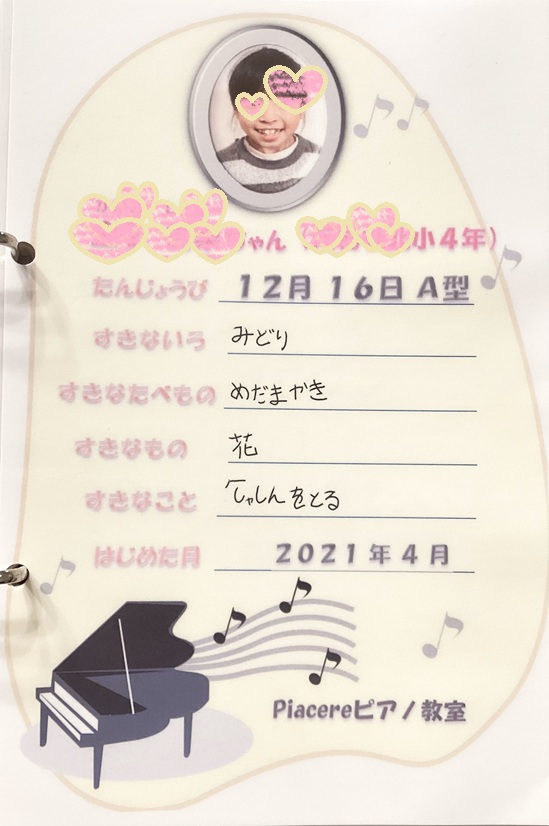 ちゃん 小4年)
たんじょうび 12月 16日 A型
すきないろ みどり
すきなたべもの めだまやき
すきなもの 花
すきなこと しゃしんをとる
はじめた月 2021年4月
Piacereピアノ教室